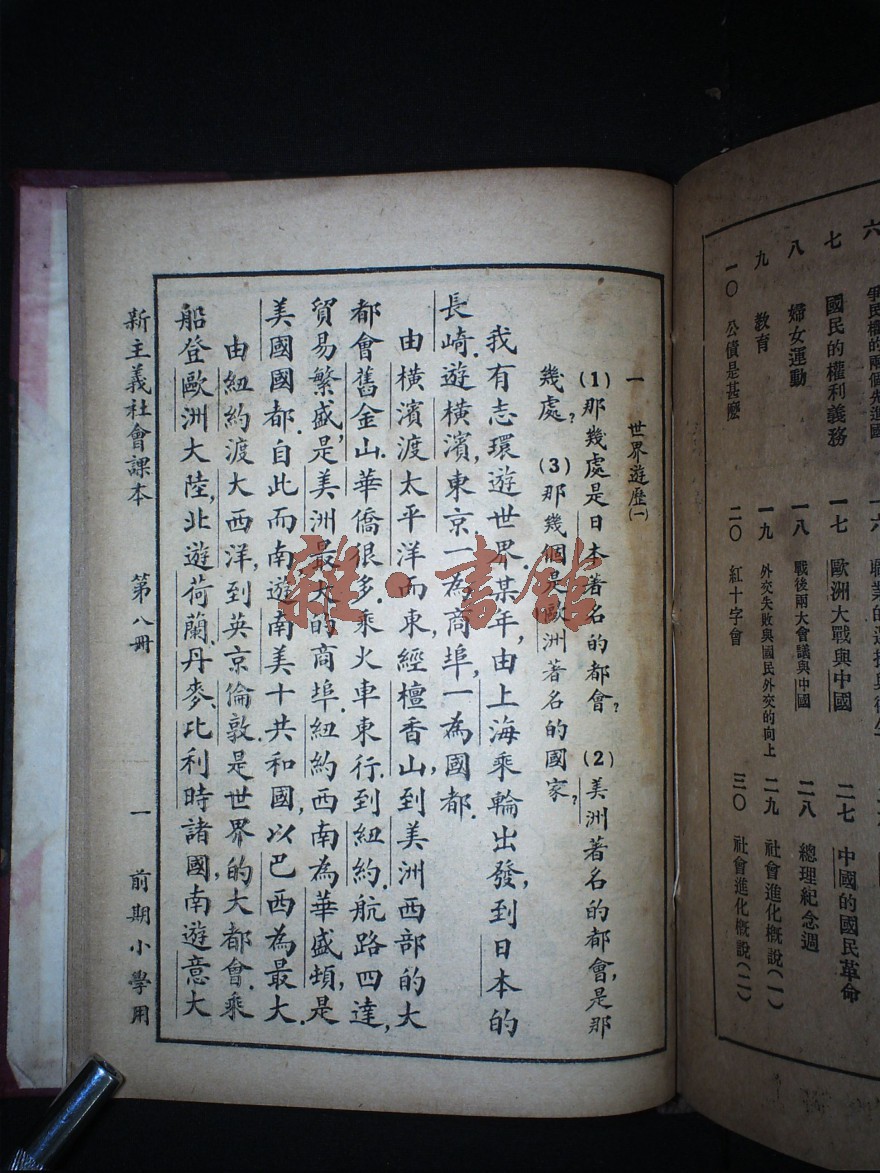 一 世界遊歷(一)
(1)那幾處是日本著名的都會? (2)美洲著名的都會,是那
幾處? (3)那幾個是歐洲著名的國家?
我有志環遊世界.某年,由上海乘輪出發,到日本的
長崎.遊橫濱,東京一為商埠,一為國都.
由橫濱渡太平洋而東,經檀香山,到美洲西部的大
都會舊金山.華僑很多.乘火車東行.到紐約.航路四達,
貿易繁盛,是美洲最大的商埠.紐約西南為華盛頓,是
美國國都.自此而南,遊南美十共和國,以巴西為最大.
由紐約渡大西洋,到英京倫敦.是世界的大都會.乘
船登歐洲大陸,北遊荷蘭.丹麥.比利時諸國,南遊意大
新主義社會課本 第八冊 一 前期小學用
六 爭民權的兩個先進國
七 國民的權利義務
八 婦女運動
九 教育
一〇 公債是甚麼
一六
一七 歐洲大戰與中國
一八 戰後兩大會議與中國
一九 外交失敗與國民外交的向上
二〇 紅十字會
二七 中國的國民革命
二八 總理紀念週
二九 社會進化概說(一)
三〇 社會進化概說(二)
雜·書館